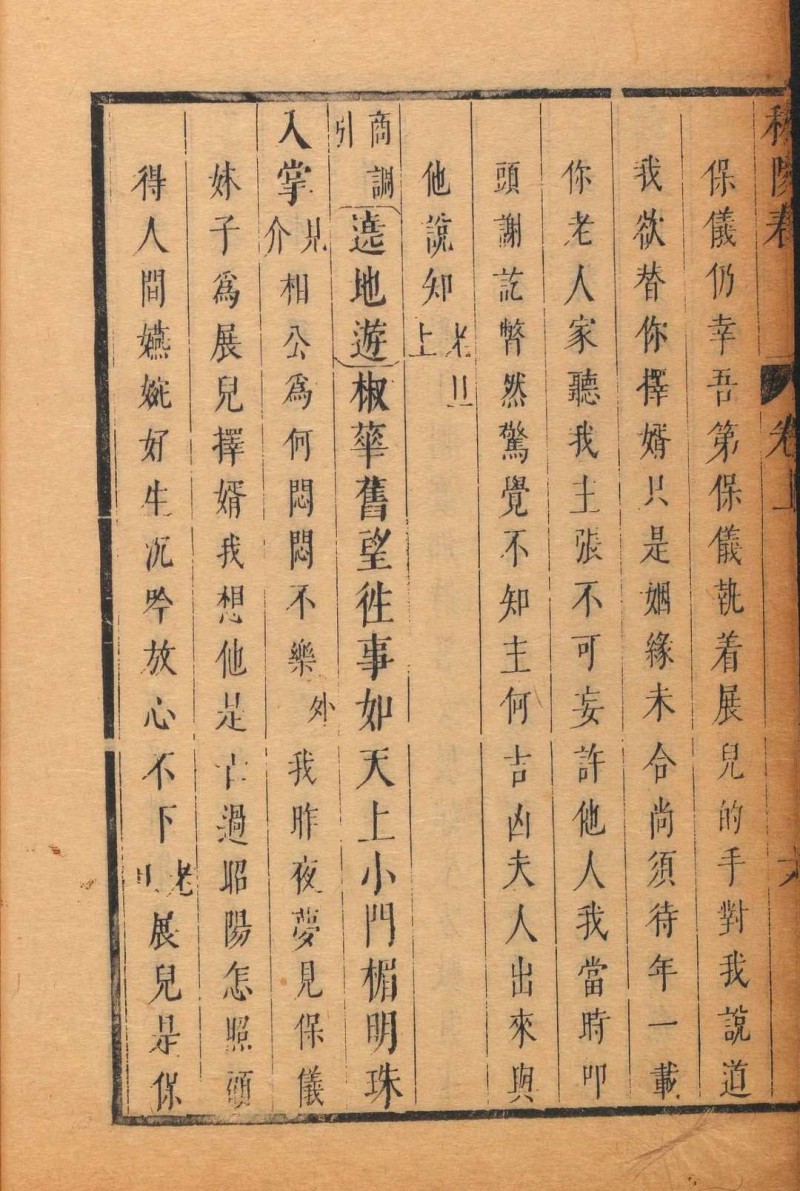 秣陵春 卷上 六
保儀仍幸吾第保儀執着展兒的手對我說道
我欲替你擇婿只是姻緣未合尚須待年一載
你老人家聽我主張不可妄許他人我當時叩
頭謝訖瞥然驚覺不知主何吉凶夫人出來與
他說知老旦上
商調引遶地遊椒華舊望徃事如天上小門楣明珠
入掌見介相公爲何悶悶不樂外我昨夜夢見保儀
妹子爲展兒擇婿我想他是占過昭陽怎照顧
得人間嬿婉好生沉吟放心不下老旦展兒是保